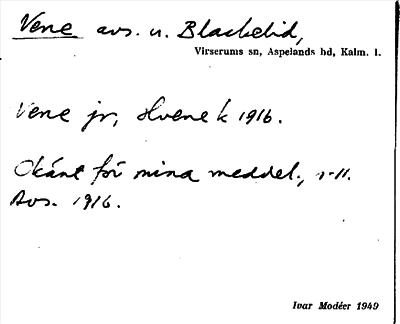 Vene avs. u. Blackelid,
Virserums sn, Aspelands hd, Kalm. l.
Vene jr, Hvene k 1916.
Okänt för mina meddel.,
Avs. 1916.
Ivar Modéer 1949